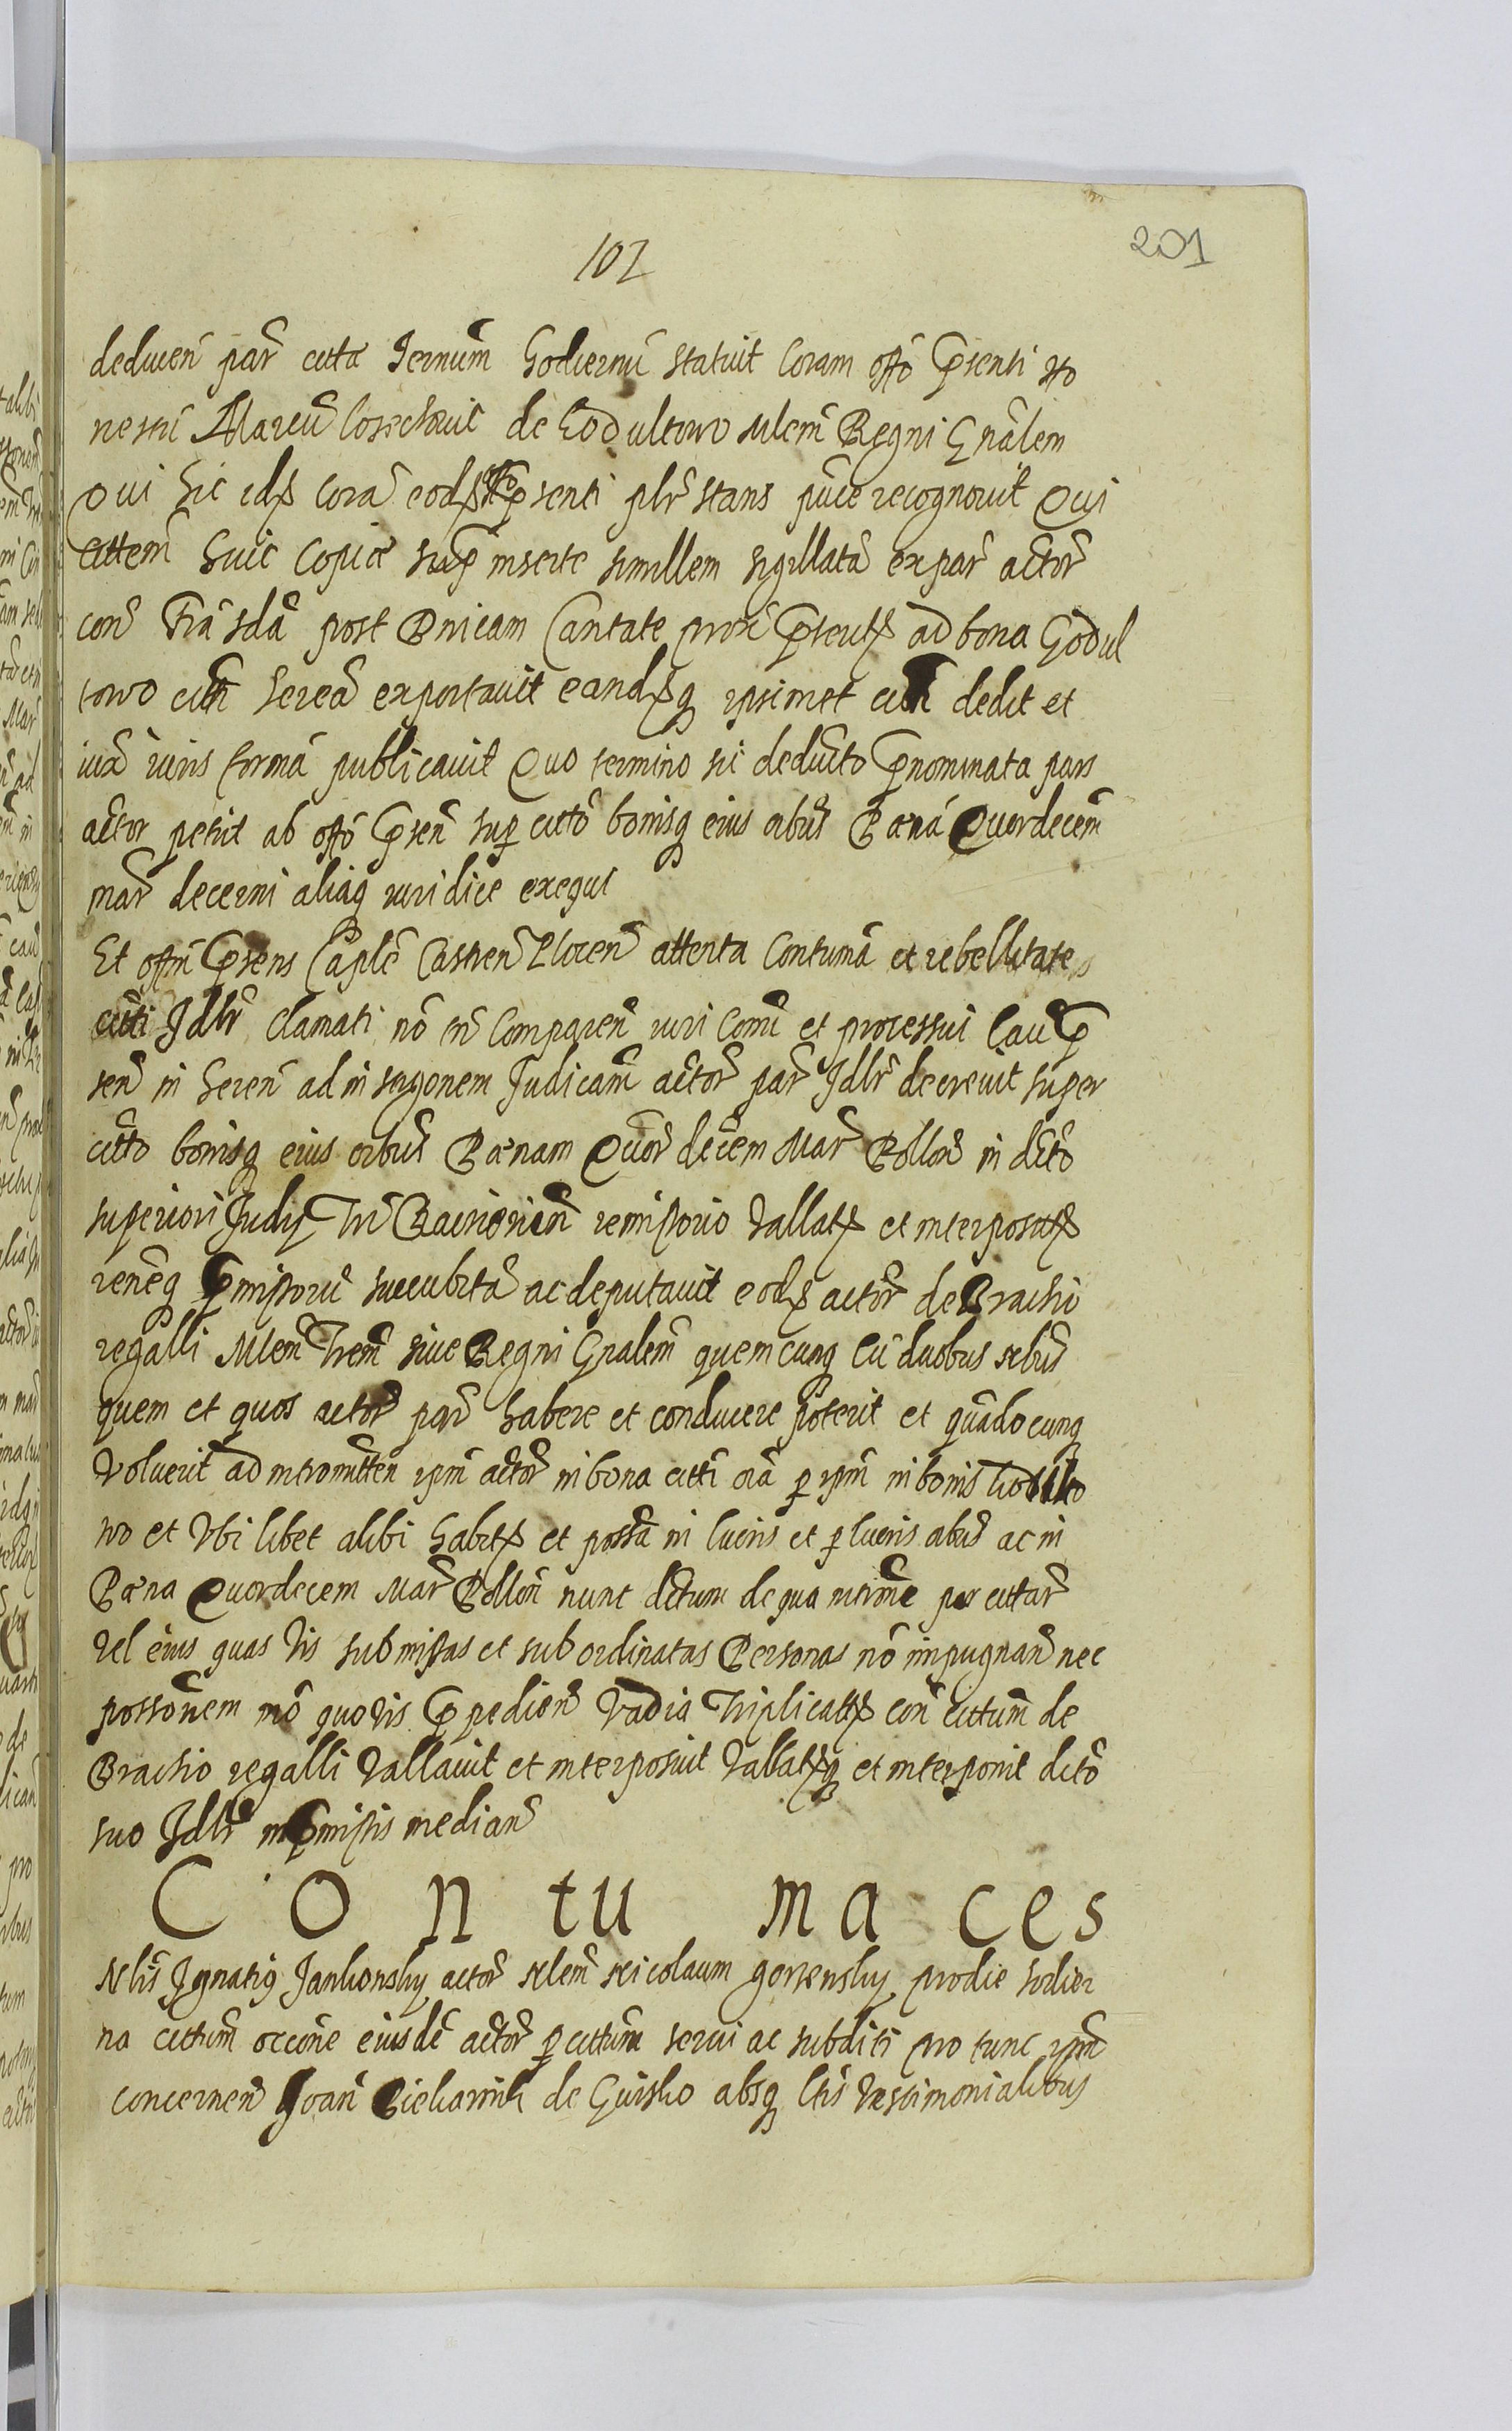 102
201
deducen par citta Termum hodiernũ statuit Coram offo psenti Ho
nestũ Marcũ Cosechowic de Godultowo Mlem Regni Gnalem
Qui hic ids Corã eods offo psenti plr stans puce recognovit Qui
Cittem huic Copiæ sup inserte simillem sigillatã ex par actor
con Fra sdã post Dnicam Cantate prox pterit ad bona Godul
towo citti hereã exportavit eandsq ipsimet citti dedit et
iux iuris formã publicavit Quo termino sic deducto pnominata pars
actor petiit ab offo psen sup citto bonisq eius oibus Pœnã Quordecem
mar decerni aliaq iuridice exequi
Et offm psens Caple Castren Plocen attenta Contumã et rebellitate
citti Jdlr clamati nõ en Comparen iuri Comi et processui Cau p
sen in heren ad instgonem Judicam actor par Jdlr decrevit super
citto bonisq eius oibus Pœnam Quor decem Mar Pollon in dcto
superiori Judy remissorio Vallats et interposits
reneq pmissorũ succubitã ac deputavit eods actor de Brachio
regalli Mlem Trem sive Regni Gnalem quemcunq Cũ duobus nlbus
quem et quos actor par habere et conducere poterit et quãdocunq
Voluerit ad intromitten ipm actor in bona citti oia p ipm in bonis Godulto
wo et Vbi libet alibi habits et possã in lucris et p lucris abus ac in
Pœna Quordecem Mar Pollon nunc dctum de qua intromne par cittar
Vel eius quas Vis submissas et subordinatas Personas nõ impugnan nec
possõnem mõ quovis ppedien Vadia Triplicats con cittum de
Brachio regalli Vallavit et interposuit Vallatsq et interponit dcto
suo Jdlr in pmissis median
C O N tu ma ces
Nlis Ignatius Jankowsky actor nlem Nicolaum gorzensky prodie hodier
na cittum occone eiusdẽ actor p cittum servi ac subditi pro tunc ipm
concernen Joan Piekarnik de Guisko absq ltis testimonialibus